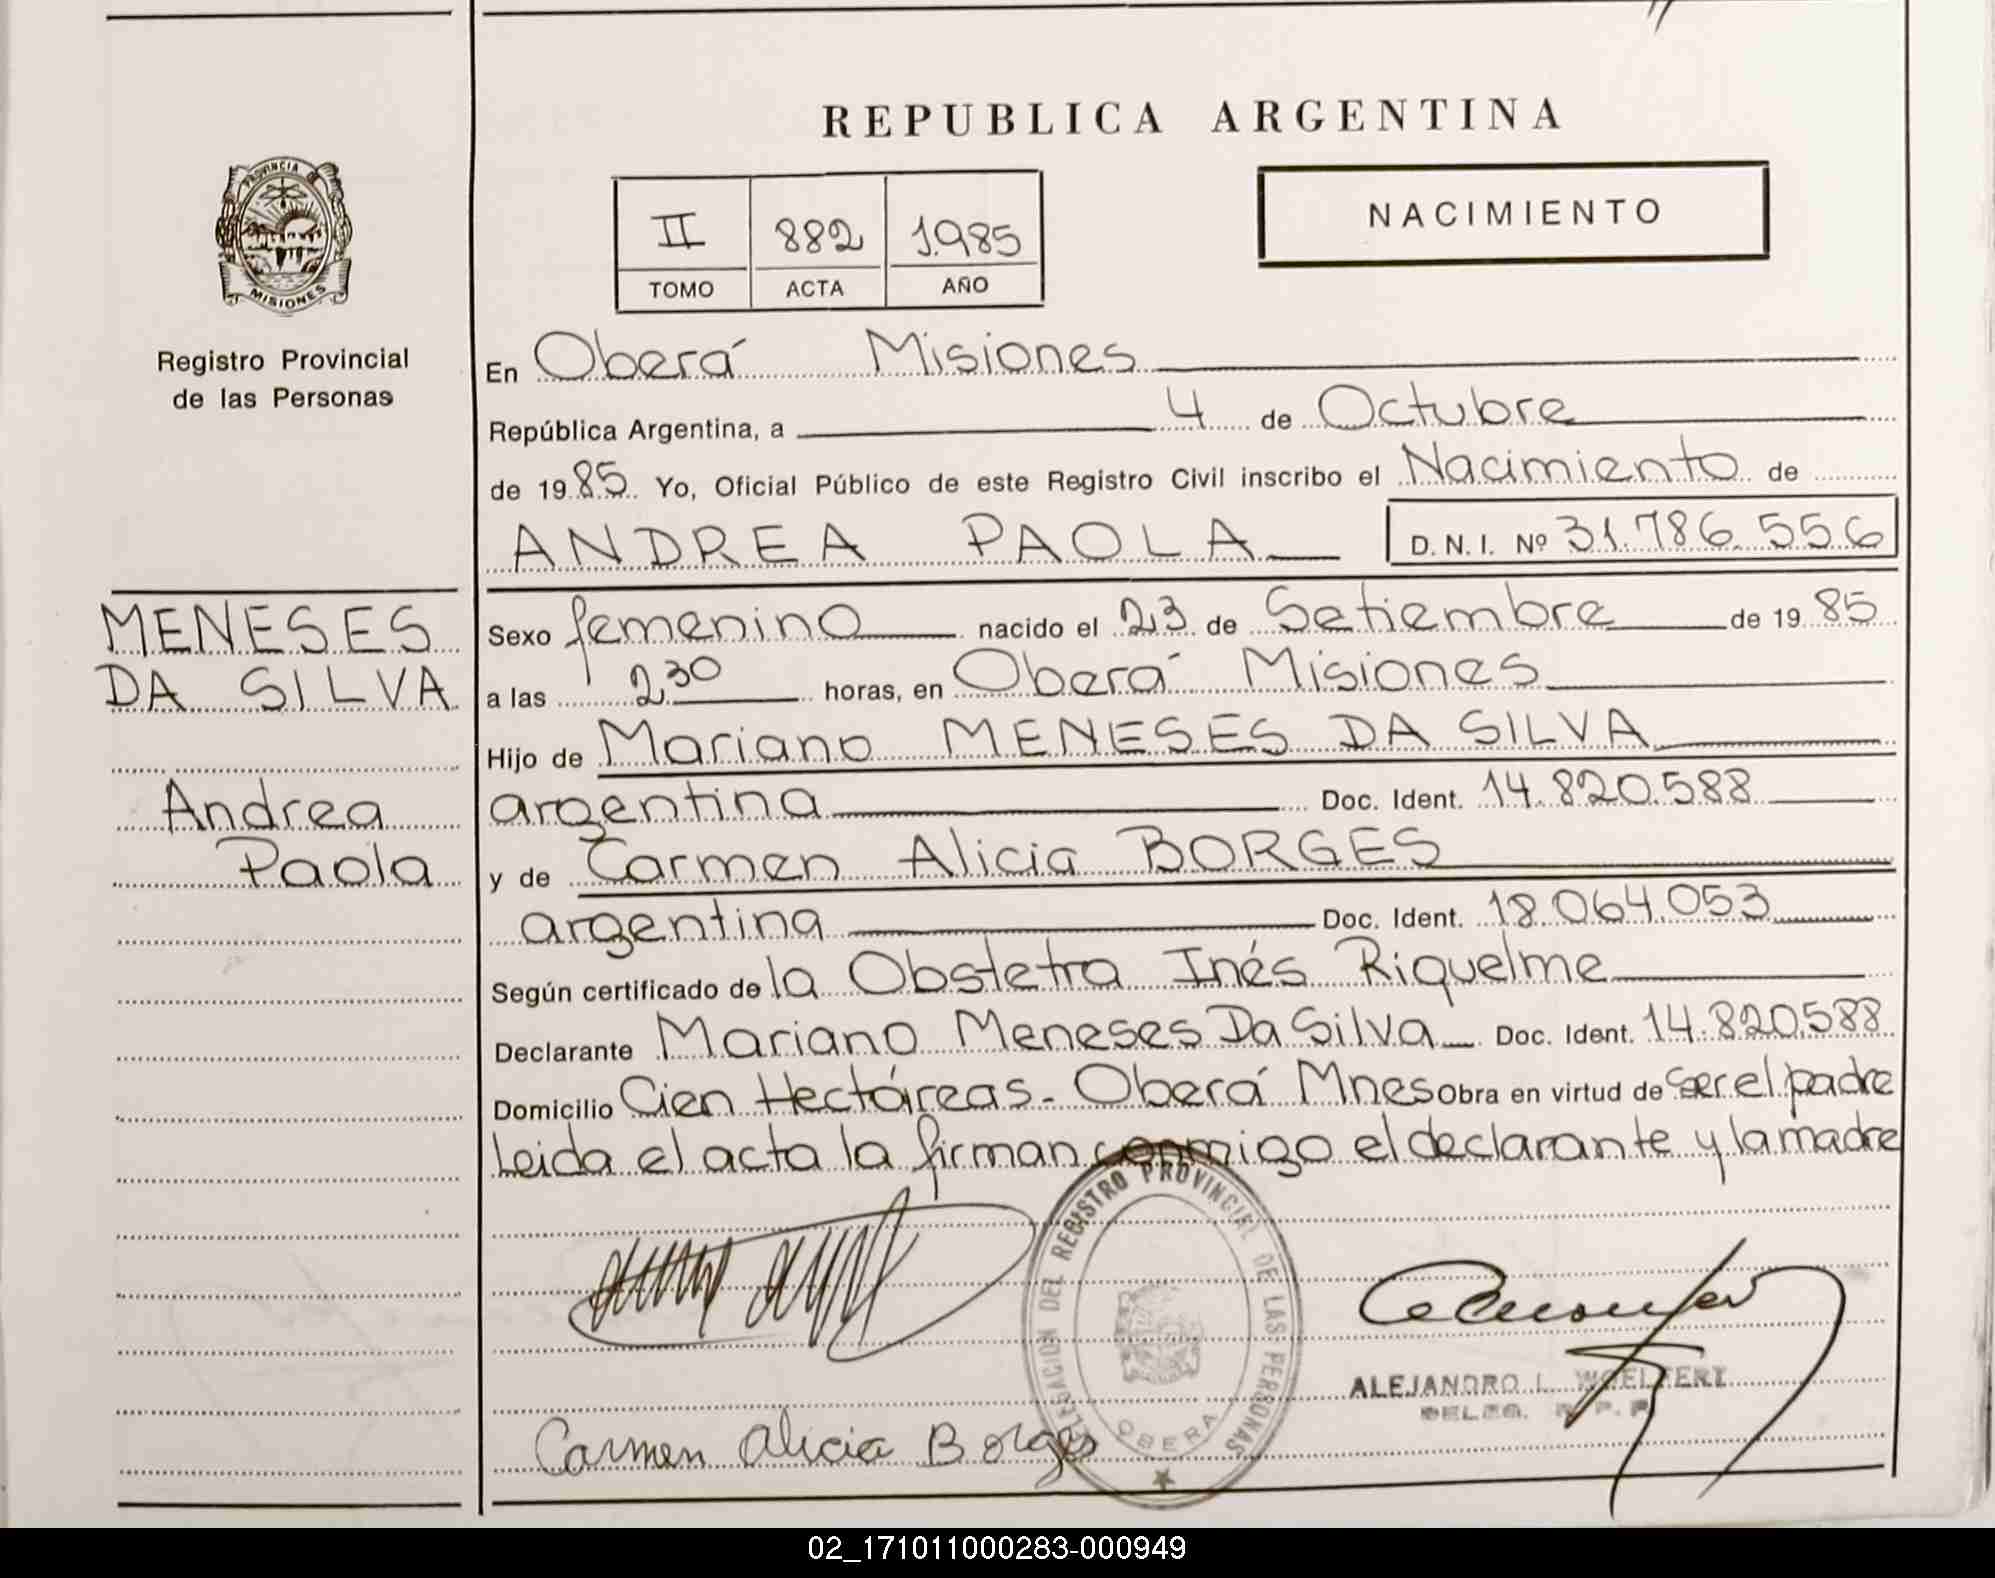 REPUBLICA ARGENTINA
PROVINCIA DE
MISIONES
Registro Provincial
de las Personas
II 882 1.985
TOMO ACTA AÑO
NACIMIENTO
En Oberá Misiones
República Argentina, a 4 de Octubre
de 1985 Yo, Oficial Público de este Registro Civil inscribo el Nacimiento de
ANDREA PAOLA D. N. I. Nº 31.786.556
MENESES
DA SILVA
Andrea
Paola
Sexo femenino nacido el 23 de Setiembre de 1985
a las 2,30 horas, en Oberá Misiones
Hijo de Mariano MENESES DA SILVA
argentina Doc. Ident. 14.820.588
y de Carmen Alicia BORGES
argentina Doc. Ident. 18.064.053
Según certificado de la Obstetra Inés Riquelme
Declarante Mariano Meneses Da Silva Doc. Ident. 14.820.588
Domicilio Cien Hectáreas - Oberá Mnes Obra en virtud de ser el padre
Leida el acta la firman conmigo el declarante y la madre
DELEGACION DEL REGISTRO PROVINCIAL DE LAS PERSONAS
OBERA
ALEJANDRO L. WOELFERT
DELEG. R. P. P.
Carmen Alicia Borges
02_171011000283-000949